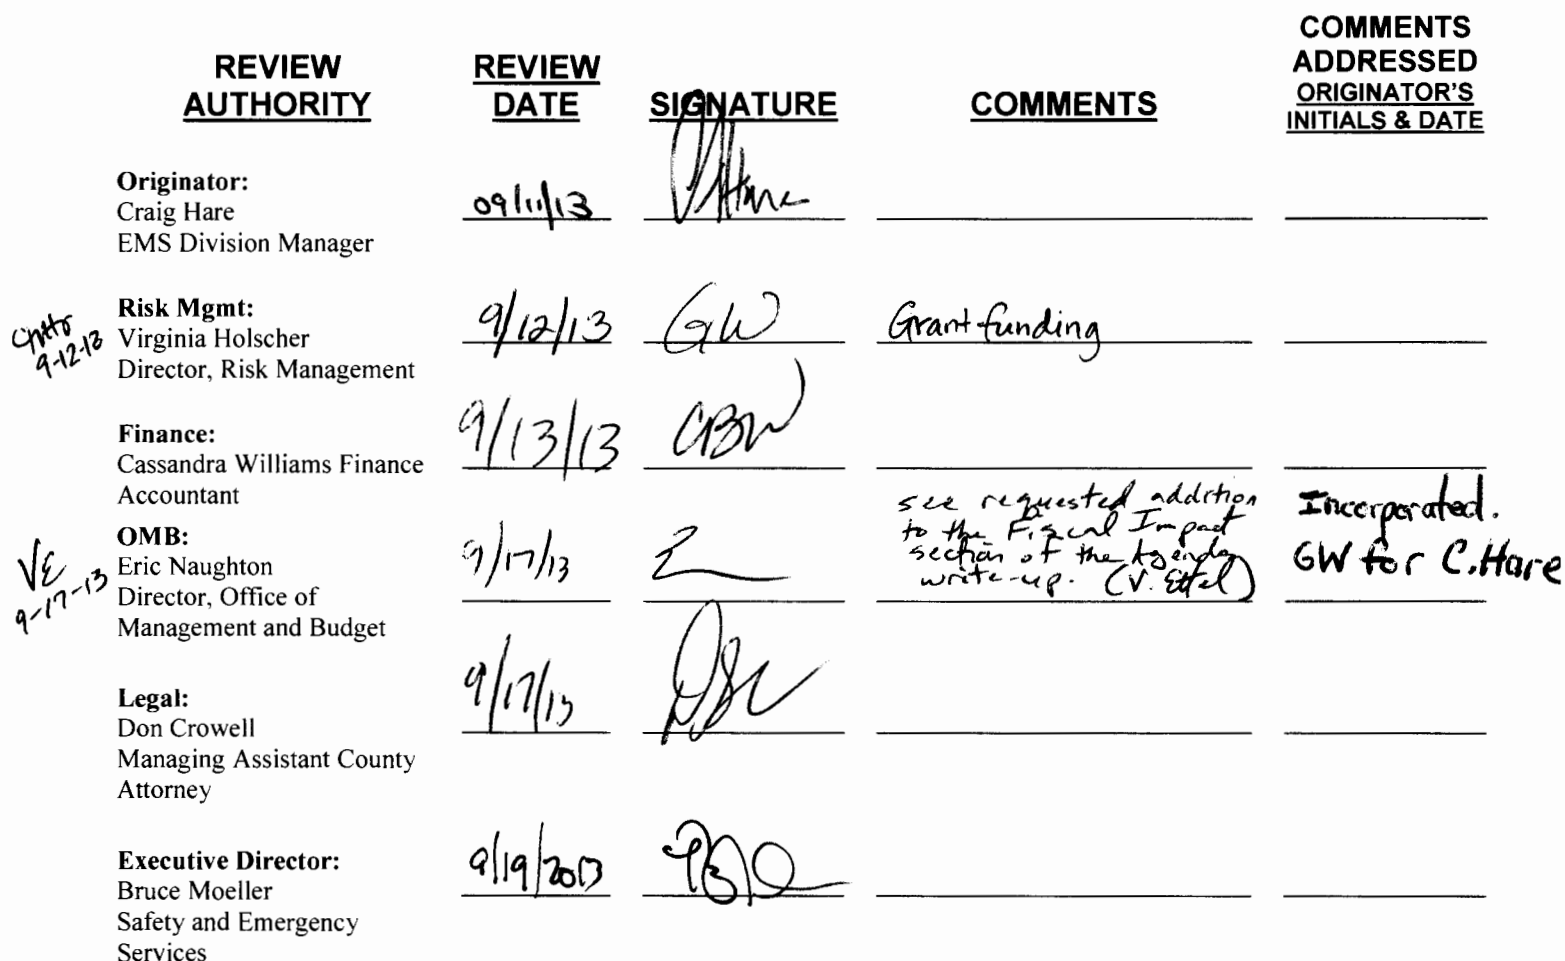 REVIEW AUTHORITY
REVIEW DATE
SIGNATURE
COMMENTS
COMMENTS ADDRESSED
ORIGINATOR'S
INITIALS & DATE
Originator:
Craig Hare
EMS Division Manager
09/11/13
Risk Mgmt:
Virginia Holscher
Director, Risk Management
9-12-13
9/12/13
GW
Grant funding
Finance:
Cassandra Williams Finance
Accountant
9/13/13
CBW
OMB:
Eric Naughton
Director, Office of
Management and Budget
VE
9-17-13
9/17/13
see requested addition
to the Fiscal Impact
section of the Agenda
write-up. (V. Ettel)
Incorporated.
GW for C.Hare
Legal:
Don Crowell
Managing Assistant County
Attorney
9/17/13
Executive Director:
Bruce Moeller
Safety and Emergency
Services
9/19/2013